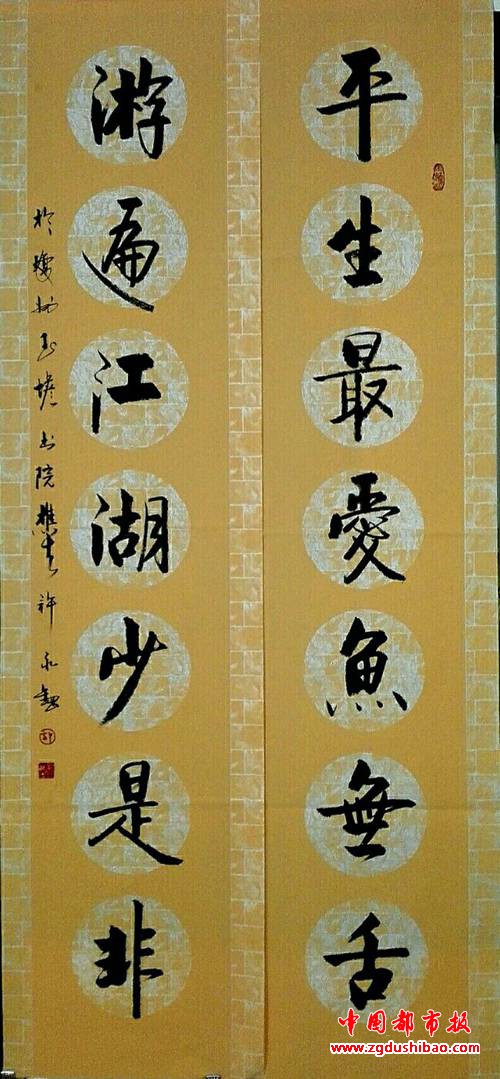 平生最愛魚無舌
游遍江湖少是非
於瓊州玉蟾書院樵夫許永
中国都市报
www.zgdushibao.com